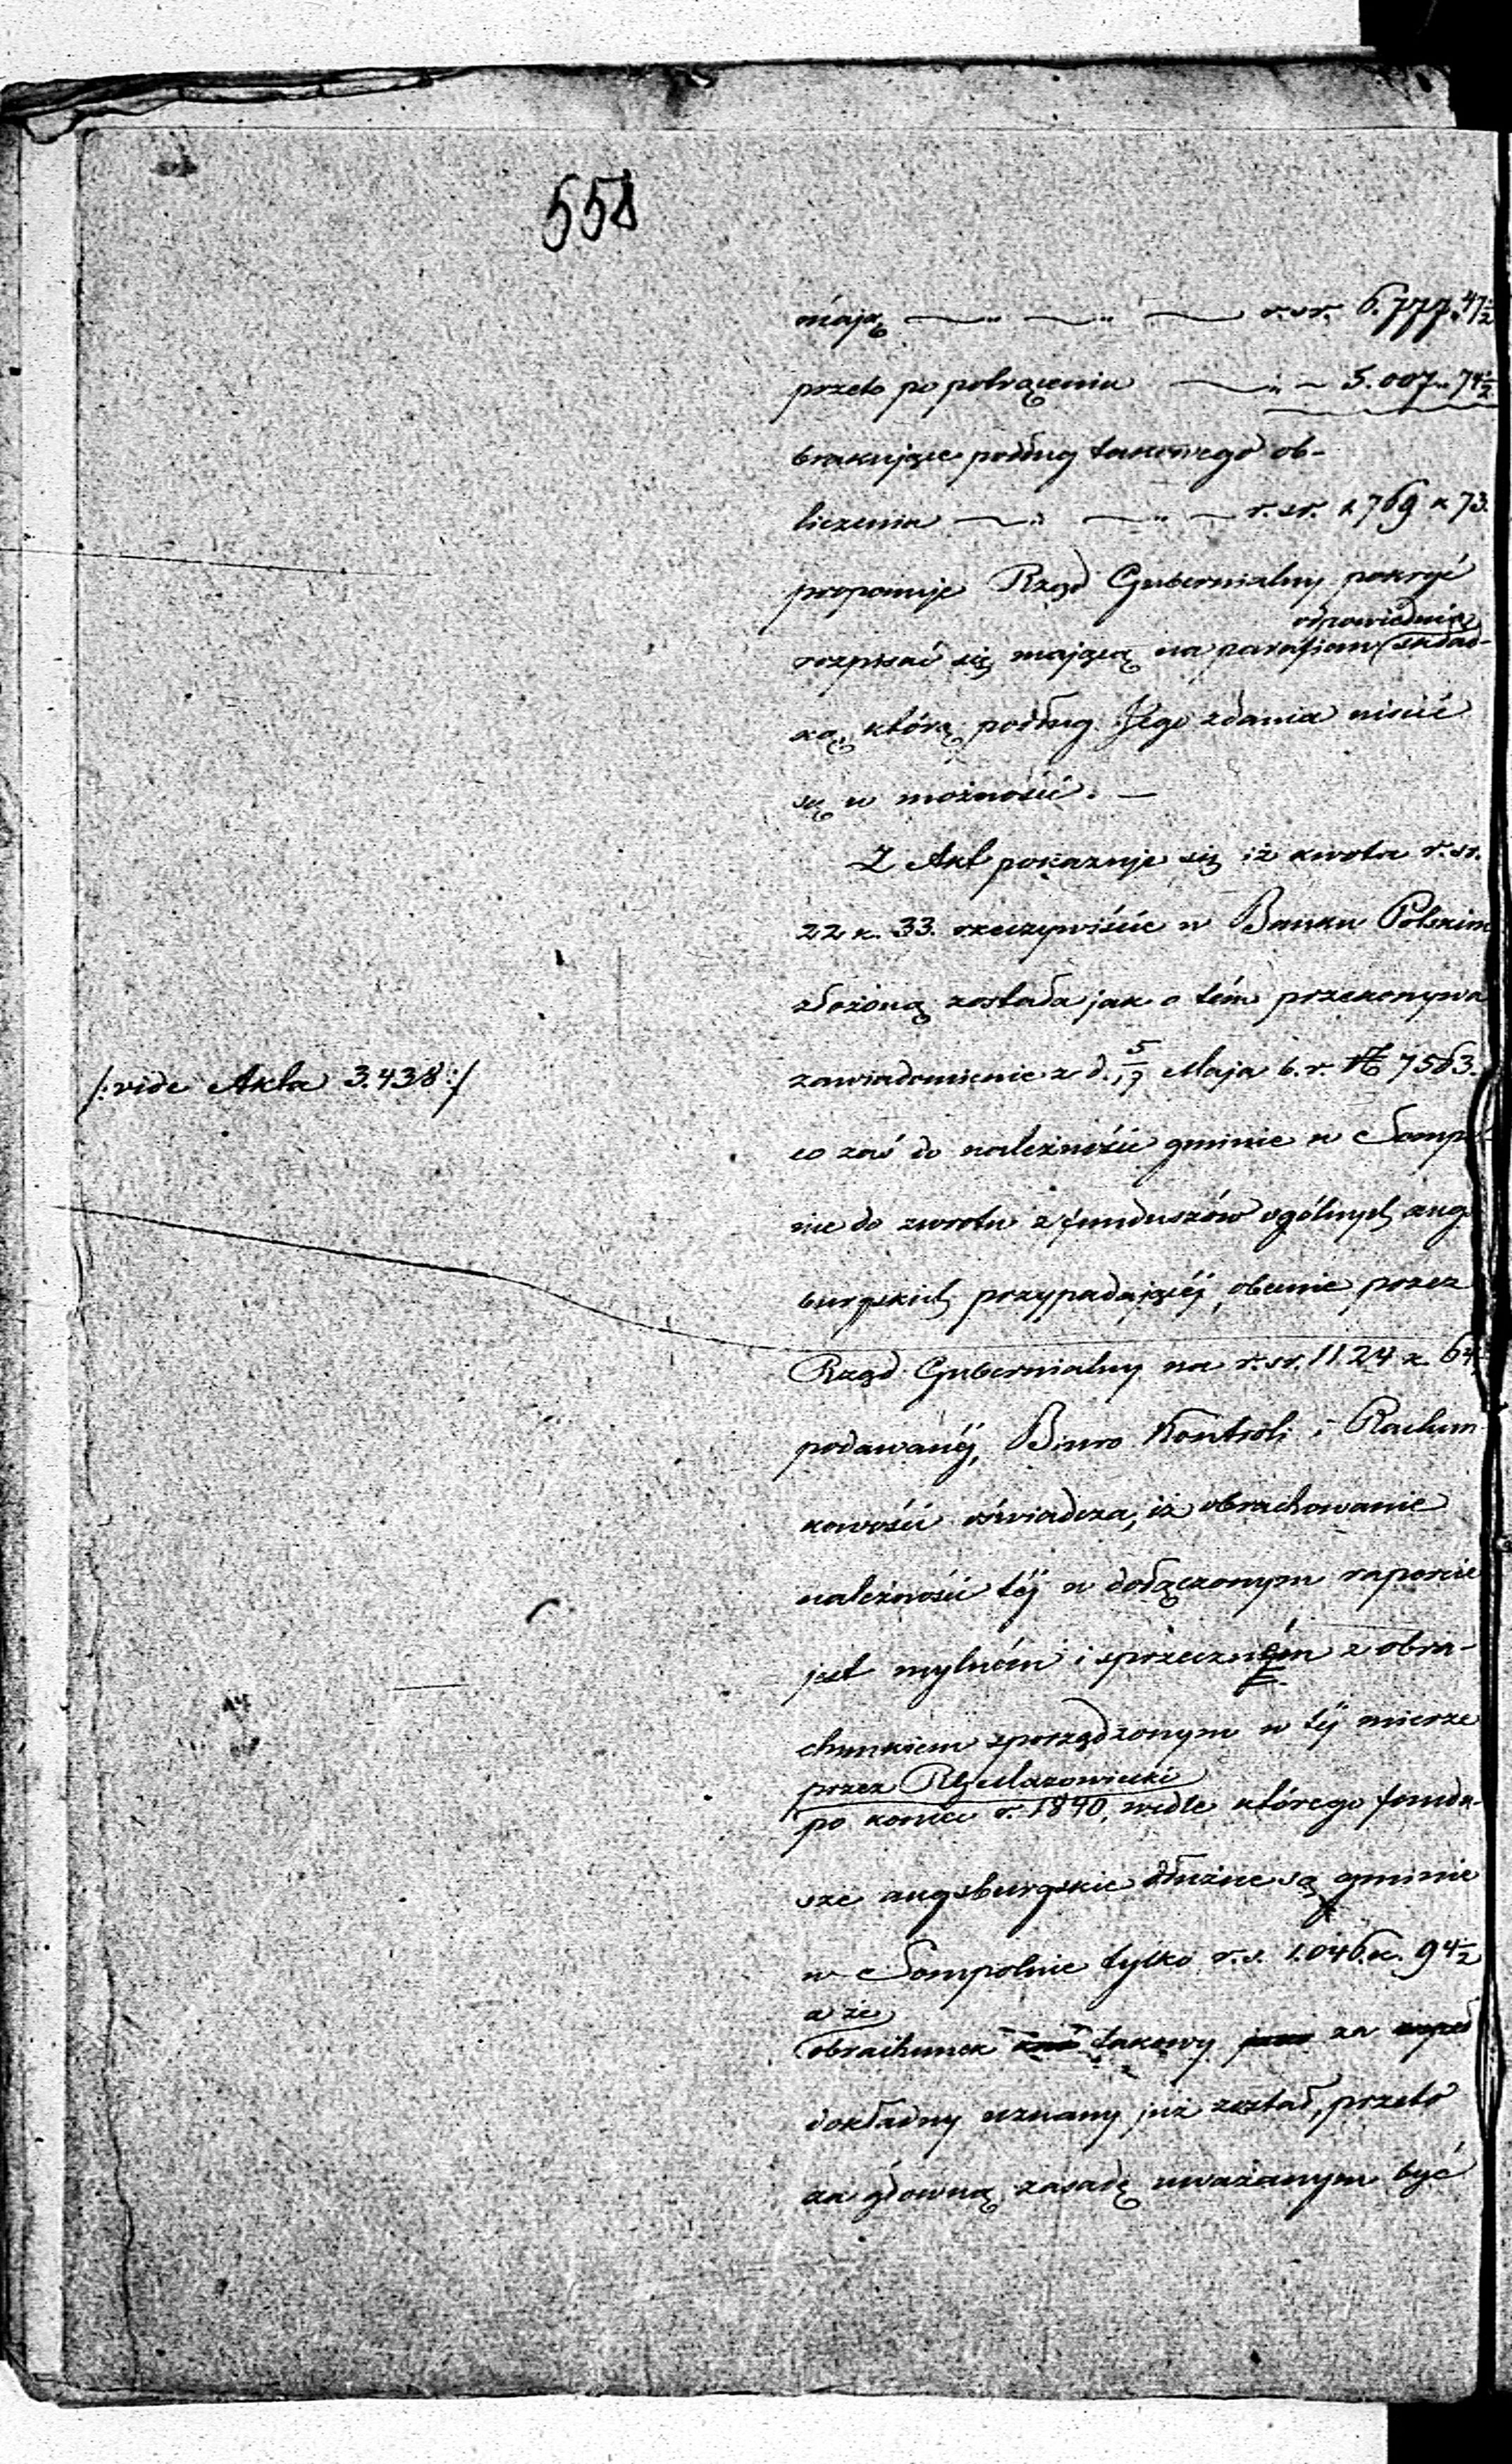 558
mają — " — " — r. sr. 6.777 " 47½
przeto po potrąceniu — " — 5.007 " 74½
brakujące podług takowego ob-
liczenia — " — " — r. sr. 1769 k 73.
proponuje Rząd Gubernialny pokryć
odpowiednią
rozpisać się mającą na parafian skład-
ką, którą podług Jego zdania uiścić
są w możności. —
Z Akt pokazuje się iż kwota r. sr.
22 k. 33. rzeczywiście w Banku Polskim
złożoną została jak o tém przekonywa
zawiadomienie z d. 5/17 Maja b. r. № 7563.
/: vide Akta 3.438 :/
co zaś do należności gminie w Sompol-
nie do zwrotu z funduszów ogólnych augs
burgskich przypadającéj, obecnie przez
Rząd Gubernialny na r. sr. 1124 k. 64
podawanéj, Biuro Kontroli i Rachun-
kowości oświadcza, iż obrachowanie
należności téj w dołączonym raporcie
jest mylném i sprzeczném z obra-
chunkiem sporządzonym w téj mierze
przez RG Mazowiecki
po koniec r. 1840, wedle którego fundu-
sze augsburgskie dłużne są gminie
w Sompolnie tylko r. s. 1.046 k. 94½
a że
obrachunek takowy za
dokładny uznany już został, przeto
za główną zasadę uważanym być